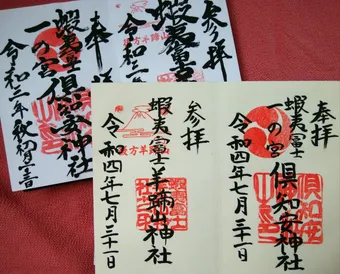 奉拝
蝦夷富士
一の宮 倶知安神社
令和四年七月三十一日
参拝
蝦夷富士 羊蹄山神社
令和四年七月三十一日
後方羊蹄山
参拝
蝦夷富士
令和三
後方羊蹄山
奉拝
蝦夷富士
一の宮 倶知安神社
令和三年